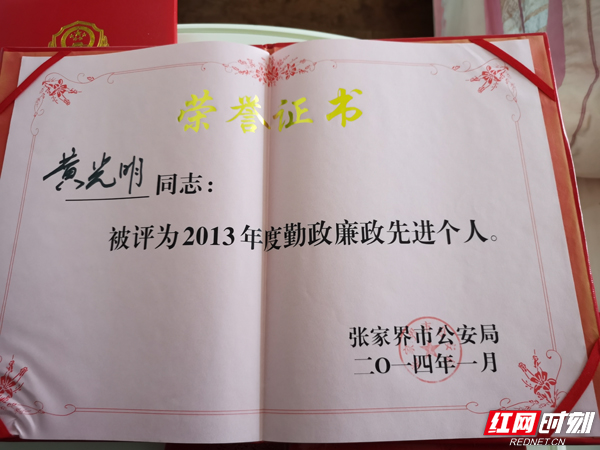 荣誉证书
黄光明 同志：
被评为2013年度勤政廉政先进个人。
张家界市公安局
二〇一四年一月
红网时刻
REDNET.CN